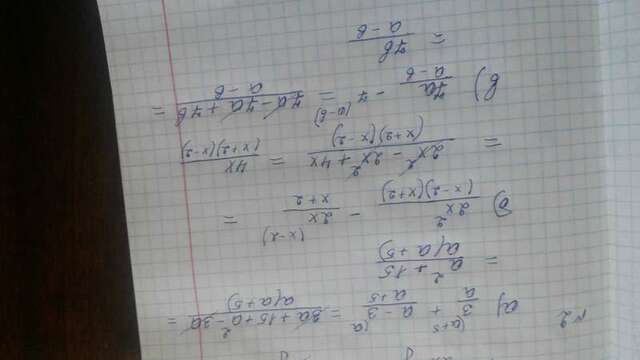 №2
а) 3/a (a+5) + (a-3)/(a+5) (a) = (3a+15+a²-3a)/(a(a+5)) =
= (a²+15)/(a(a+5))
б) 2x²/((x-2)(x+2)) - 2x/(x+2) (x-2) =
= (2x²-2x²+4x)/((x+2)(x-2)) = 4x/((x+2)(x-2))
в) 7a/(a-b) - 7 (a-b) = (7a-7a+7b)/(a-b) =
= 7b/(a-b)